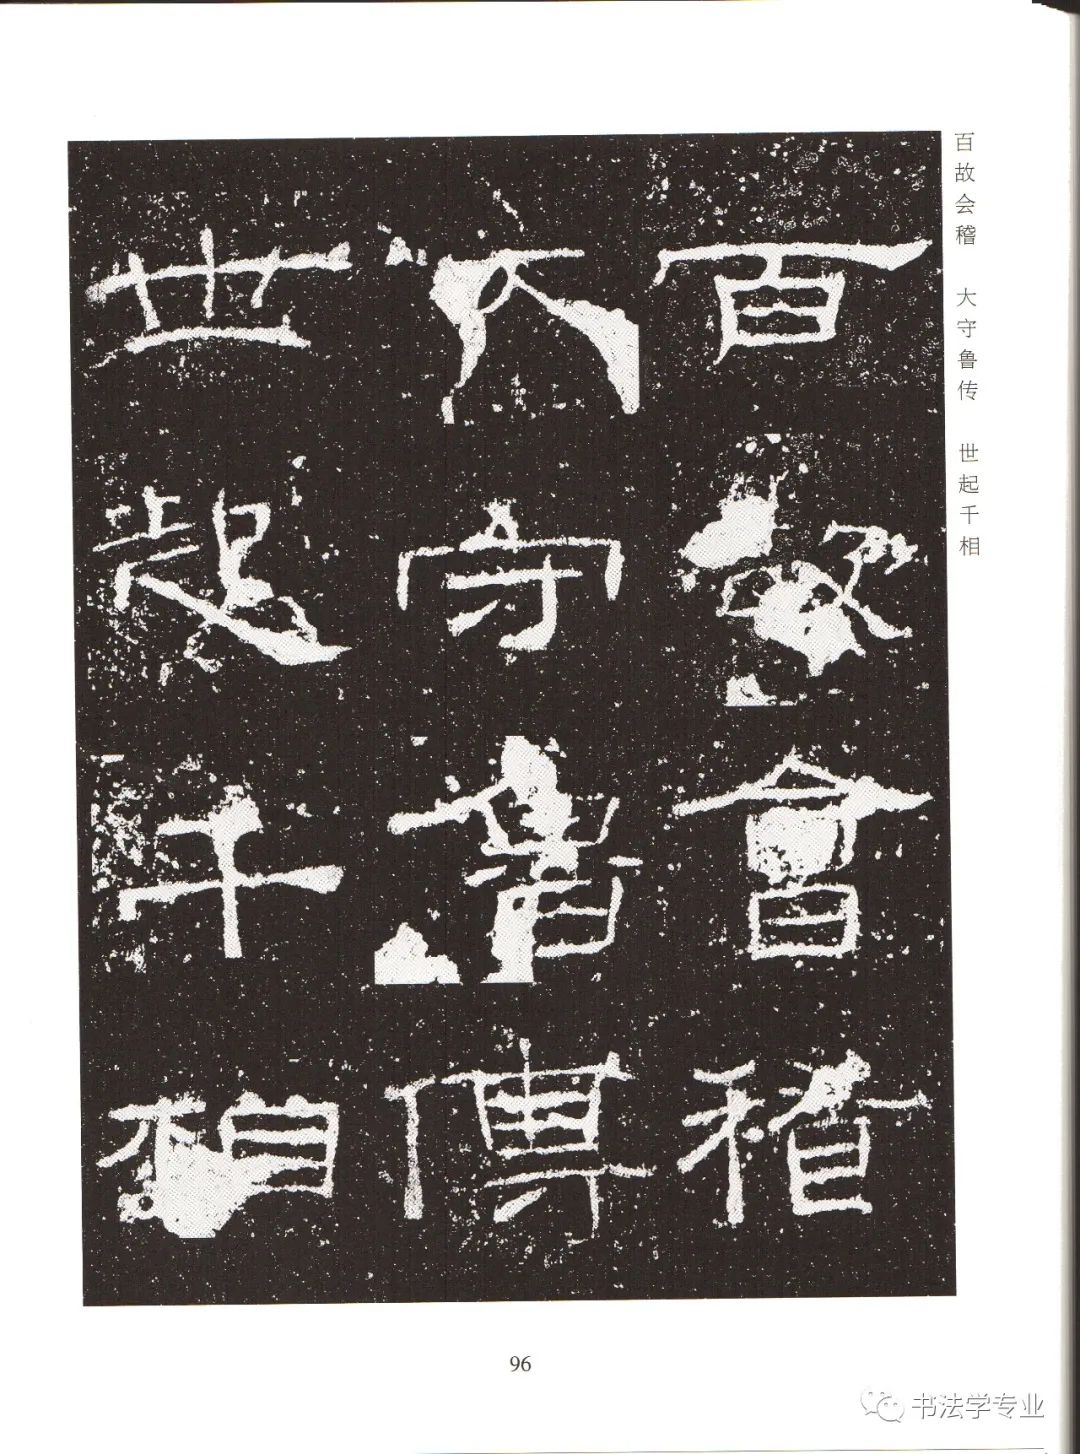 百故会稽　大守鲁传　世起千相
百故會稽
大守魯傳
世起千相
96
书法学专业